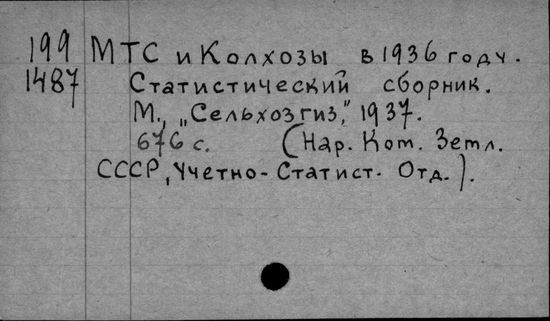 199 МТС и Колхозы в 1936 году.
1487 Статистический сборник.
М., „Сельхозгиз," 1937.
676 с. (Нар. Ком. Земл.
СССР, Учетно-Статист. Отд.).